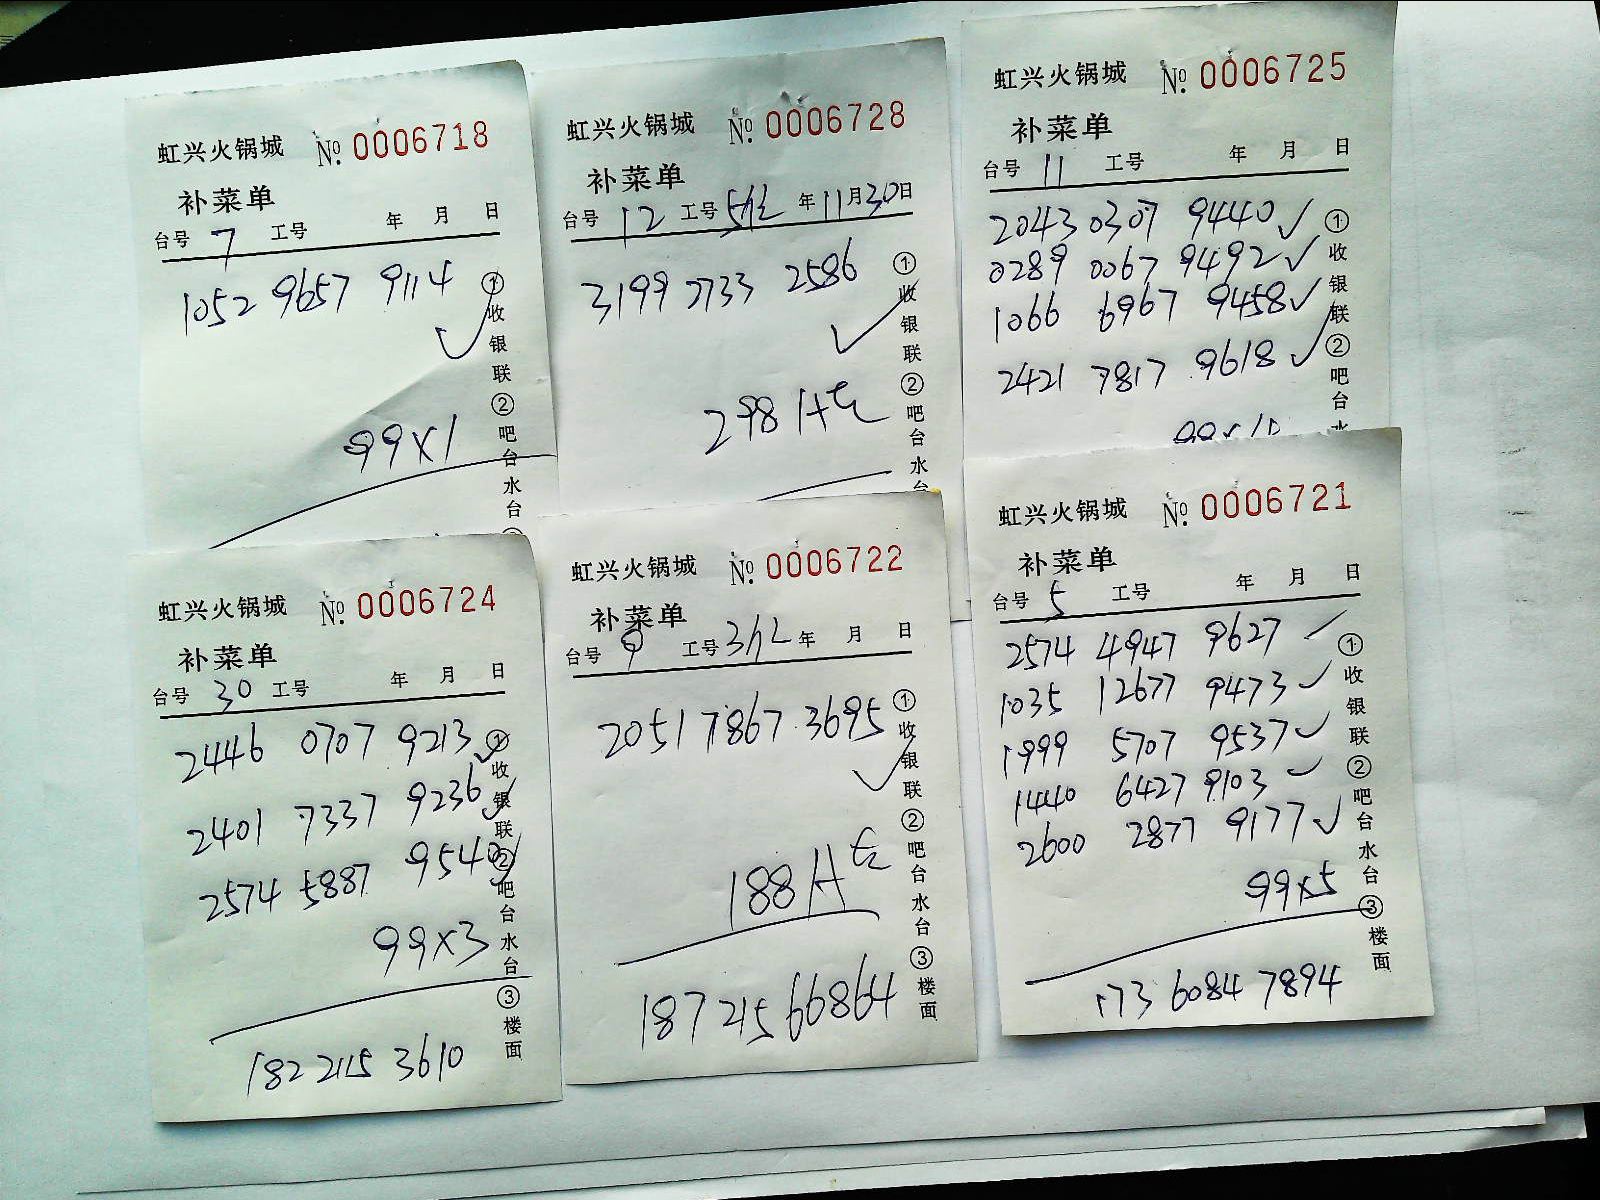 虹兴火锅城 №: 0006718
补菜单
台号 7 工号 年 月 日
1052 9657 9114
99x1
①收银联②吧台水台
虹兴火锅城 №: 0006728
补菜单
台号 12 工号 年 11月30日
3199 7733 2586
298
①收银联②吧台水台
虹兴火锅城 №: 0006725
补菜单
台号 11 工号 年 月 日
2043 0307 9440 ✓
0289 0067 9492 ✓
1066 6967 9458 ✓
2421 7817 9618 ✓
①收银联②吧台水
虹兴火锅城 №: 0006724
补菜单
台号 30 工号 年 月 日
2446 0707 9213 ✓
2401 7337 9236 ✓
2574 5887
99x3
182 2115 3610
①收银联②吧台水台③楼面
虹兴火锅城 №: 0006722
补菜单
台号 9 工号 年 月 日
2051 7867 3695
188
187 215 66864
①收银联②吧台水台③楼面
虹兴火锅城 №: 0006721
补菜单
台号 5 工号 年 月 日
2574 4947 9627 ✓
1035 12677 9473 ✓
1999 5707 9537 ✓
1440 6427 9103 ✓
2600 2877 9177 ✓
99x5
173 6084 7894
①收银联②吧台水台③楼面